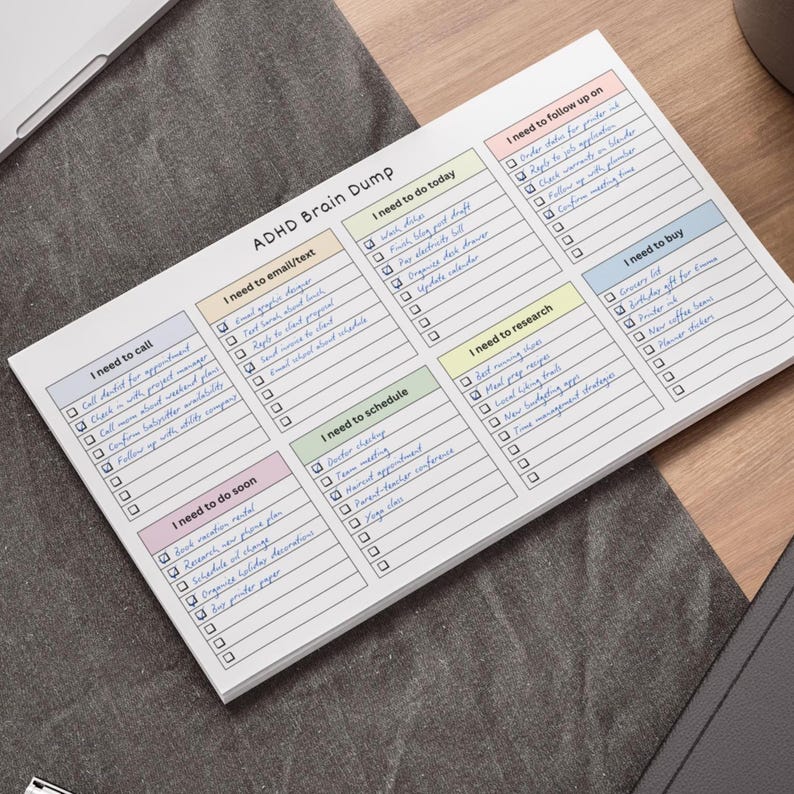 ADHD Brain Dump
I need to call
Call dentist for appointment
Check in with project manager
Call mom about weekend plans
Confirm babysitter availability
Follow up with utility company
I need to email/text
Email graphic designer
Text Sarah about lunch
Reply to client proposal
Send invoice to client
Email school about schedule
I need to do today
Wash dishes
Finish blog post draft
Pay electricity bill
Organize desk drawer
Update calendar
I need to follow up on
Order status for printer ink
Reply to job application
Check warranty on blender
Follow up with plumber
Confirm meeting time
I need to do soon
Book vacation rental
Research new phone plan
Schedule oil change
Organize holiday decorations
Buy printer paper
I need to schedule
Doctor checkup
Team meeting
Haircut appointment
Parent-teacher conference
Yoga class
I need to research
Best running shoes
Meal prep recipes
Local hiking trails
New budgeting apps
Time management strategies
I need to buy
Grocery list
Birthday gift for Emma
Printer ink
New coffee beans
Planner stickers